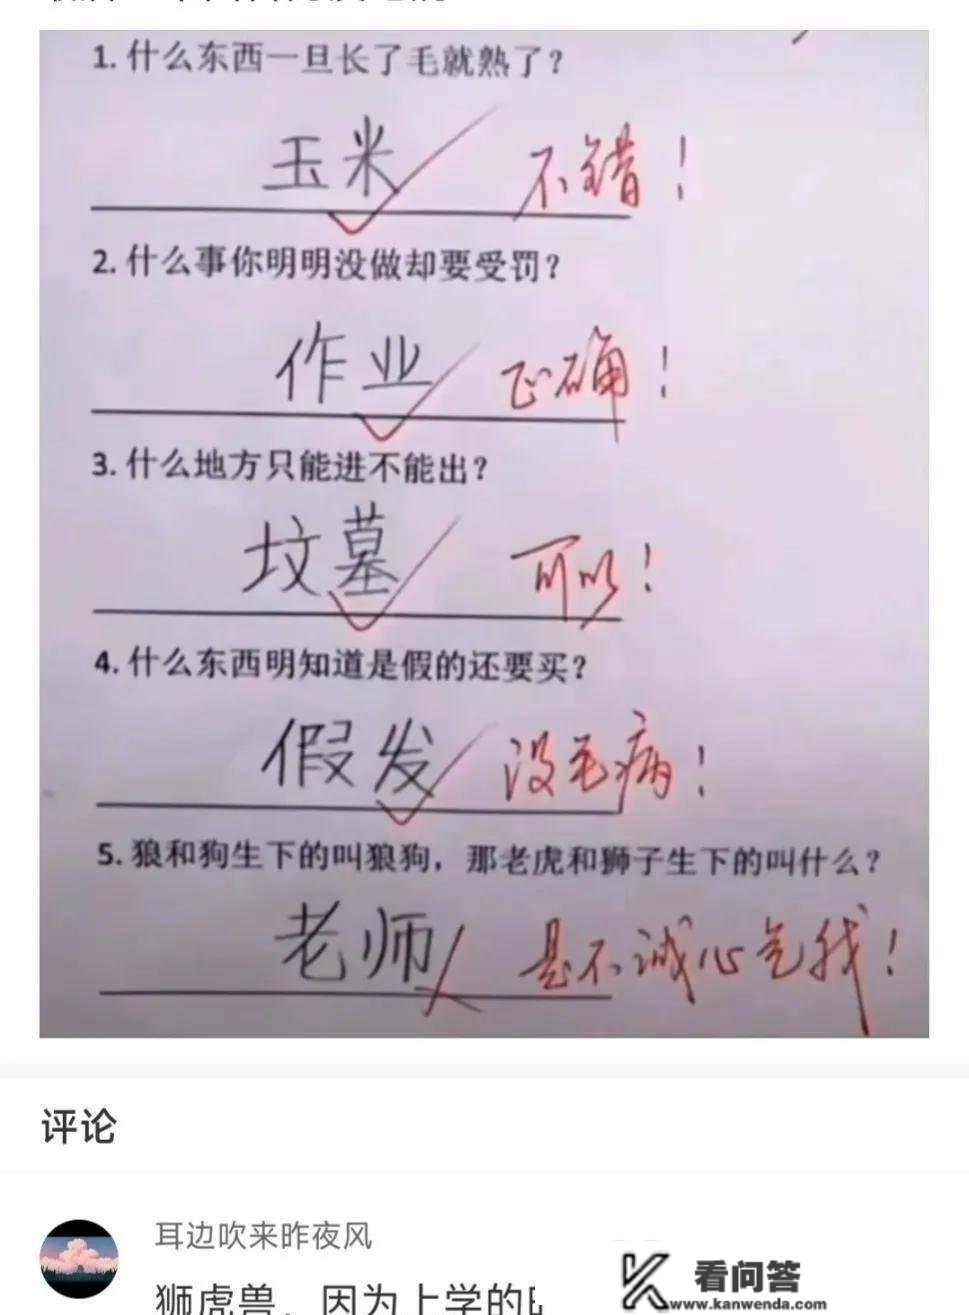 1. 什么东西一旦长了毛就熟了？
玉米 不错！
2. 什么事你明明没做却要受罚？
作业 正确！
3. 什么地方只能进不能出？
坟墓 可以！
4. 什么东西明知道是假的还要买？
假发 没毛病！
5. 狼和狗生下的叫狼狗，那老虎和狮子生下的叫什么？
老师 是不诚心气我！
评论
耳边吹来昨夜风
狮虎兽，因为上学的
看问答
www.kanwenda.com